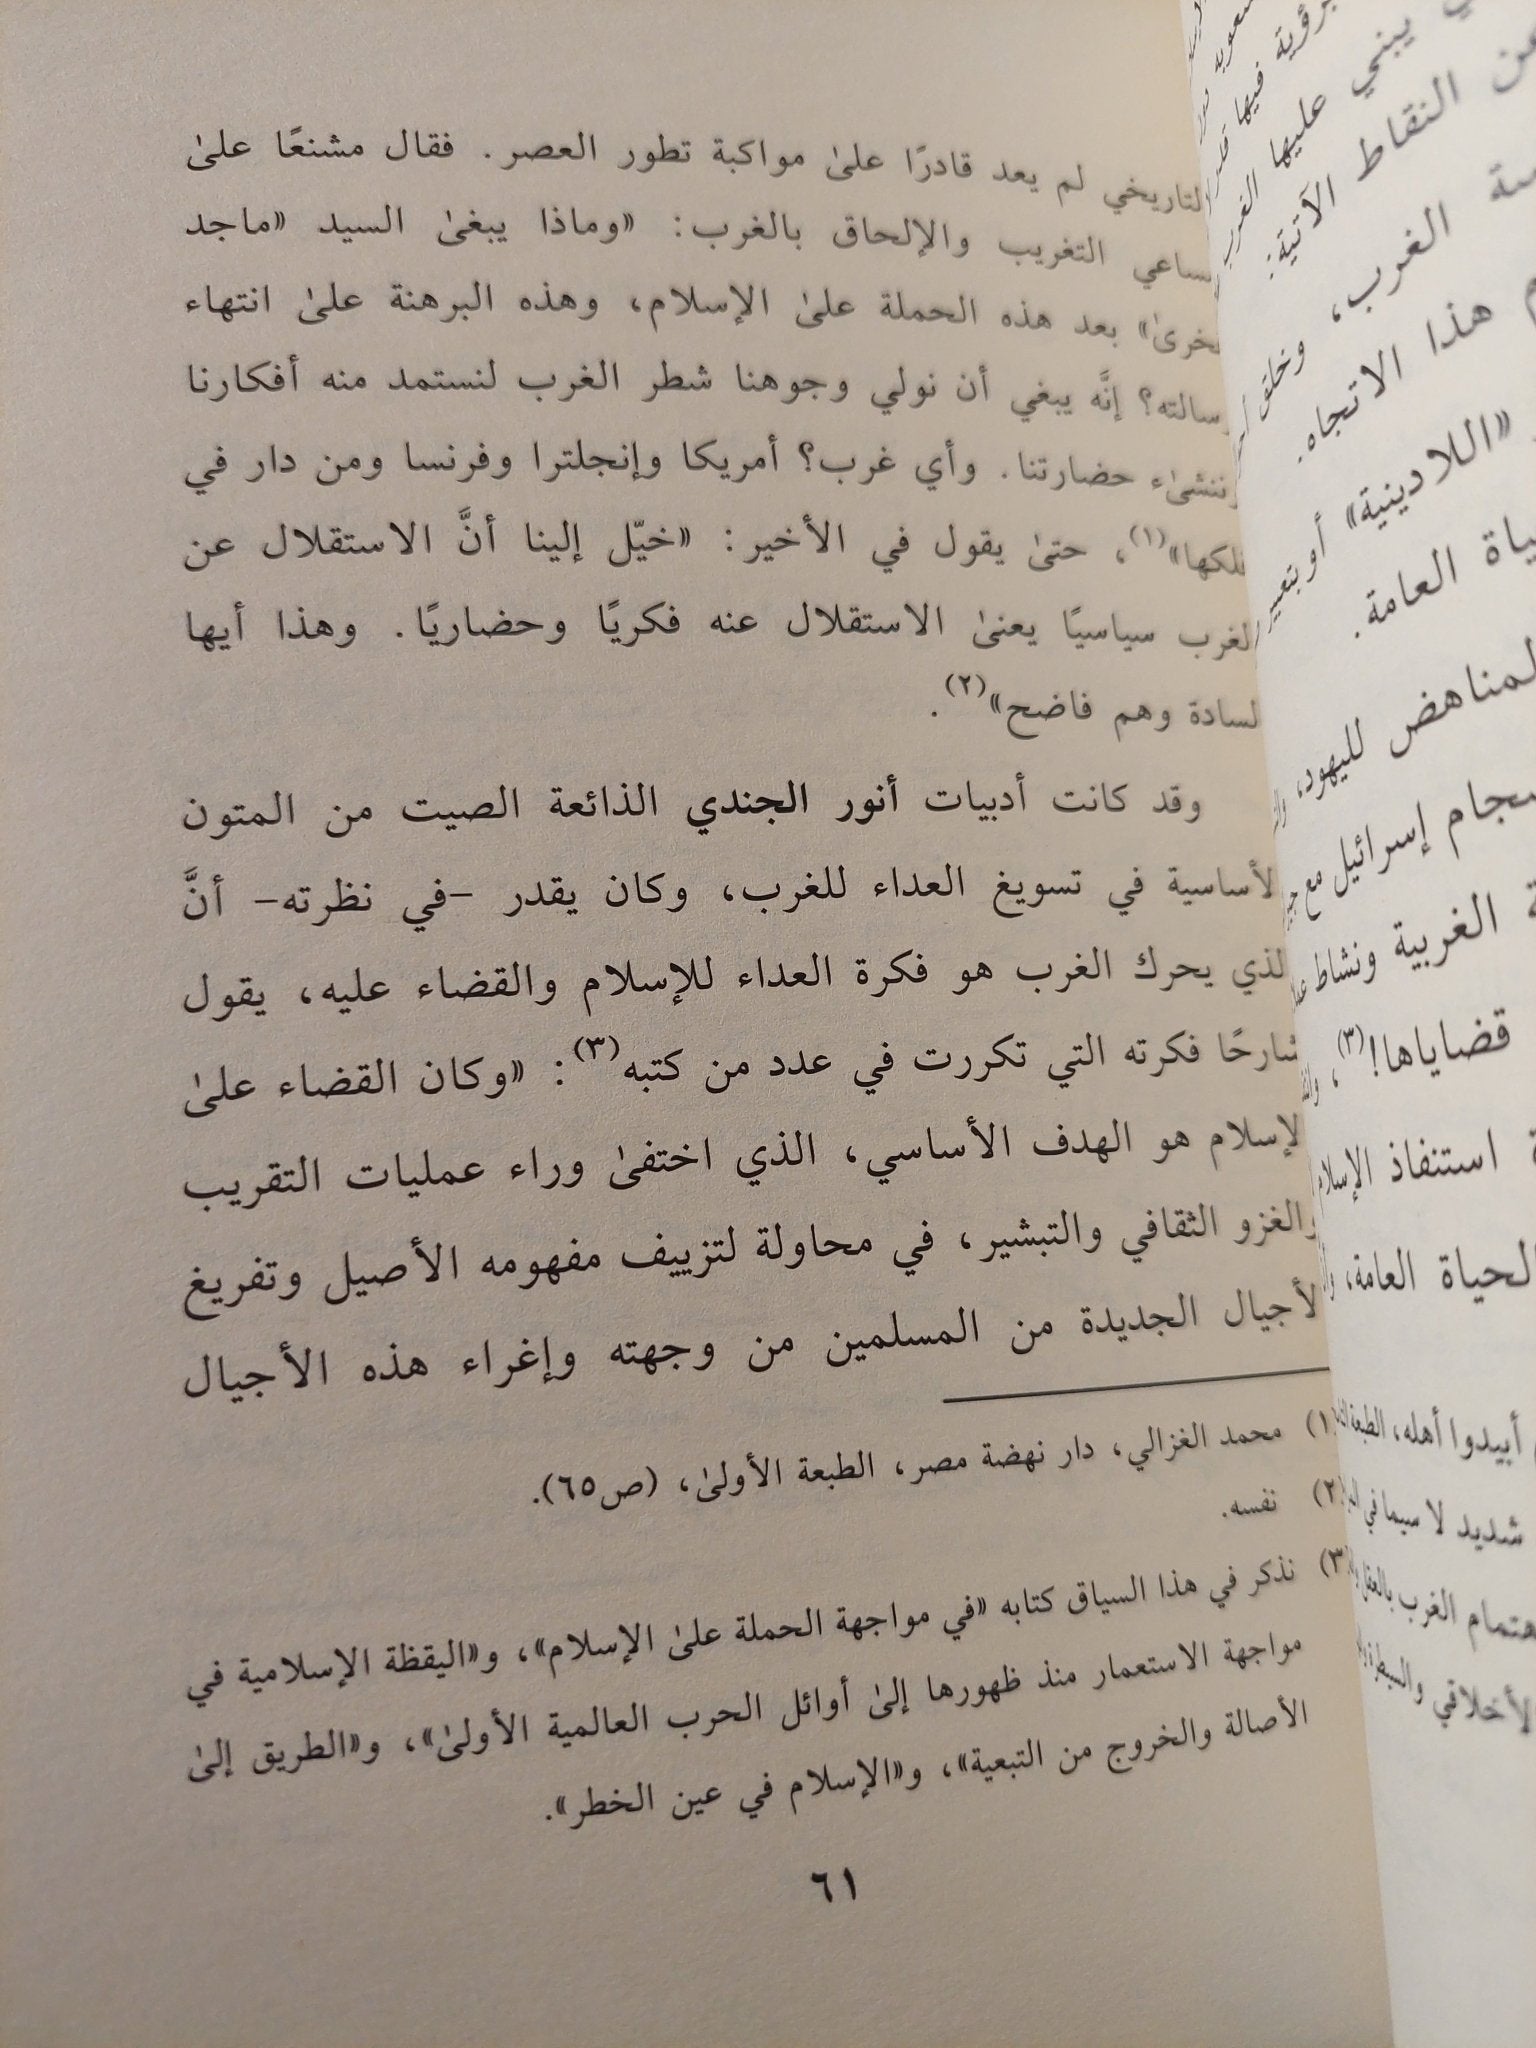 التاريخي لم يعد قادرًا علىٰ مواكبة تطور العصر. فقال مشنعًا علىٰ
التغريب والإلحاق بالغرب: «وماذا يبغىٰ السيد «ماجد
بعد هذه الحملة علىٰ الإسلام، وهذه البرهنة علىٰ انتهاء
رسالته؟ إنَّه يبغي أن نولي وجوهنا شطر الغرب لنستمد منه أفكارنا
وننشىٔء حضارتنا. وأي غرب؟ أمريكا وإنجلترا وفرنسا ومن دار في
فلكها»(١)، حتىٰ يقول في الأخير: «خيّل إلينا أنَّ الاستقلال عن
الغرب سياسيًا يعنىٰ الاستقلال عنه فكريًا وحضاريًا. وهذا أيها
السادة وهم فاضح»(٢).
وقد كانت أدبيات أنور الجندي الذائعة الصيت من المتون
الأساسية في تسويغ العداء للغرب، وكان يقدر -في نظرته- أنَّ
الذي يحرك الغرب هو فكرة العداء للإسلام والقضاء عليه، يقول
شارحًا فكرته التي تكررت في عدد من كتبه(٣): «وكان القضاء علىٰ
الإسلام هو الهدف الأساسي، الذي اختفىٰ وراء عمليات التقريب
والغزو الثقافي والتبشير، في محاولة لتزييف مفهومه الأصيل وتفريغ
الأجيال الجديدة من المسلمين من وجهته وإغراء هذه الأجيال
(١) محمد الغزالي، دار نهضة مصر، الطبعة الأولىٰ، (ص٦٥).
(٢) نفسه.
(٣) نذكر في هذا السياق كتابه «في مواجهة الحملة علىٰ الإسلام»، و«اليقظة الإسلامية في
مواجهة الاستعمار منذ ظهورها إلىٰ أوائل الحرب العالمية الأولىٰ»، و«الطريق إلىٰ
الأصالة والخروج من التبعية»، و«الإسلام في عين الخطر».
٦١
يبني عليها الغرب
النقاط الآتية:
الغرب، وخلق
هذا الاتجاه.
«اللادينية» أو بتعبير
العامة.
المناهض لليهود،
إسرائيل مع
الغربية ونشاط
قضاياها!(٣)،
استنفاذ الإسلام
الحياة العامة،
أبيدوا أهله، الطبعة
شديد لا سيما في
الغرب بالعقل